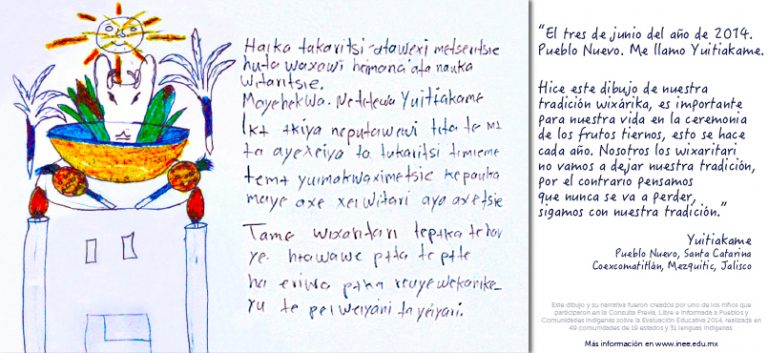 Haika takaritsi-atawexi metseritsie
huta waxawi heimana ata nauka
witaritsie.
Mayehekwa. Netetewa Yuitiakame
Ikɨ tkiya neputawewi tita ta mɨ
ta ayexeiya ta tukaritsi timieme
temɨ yuimakwaximetsie kepauka
maiye axe xei witari aya axetsie
Tame wixaritari tepɨka
ye.
ha eriwa pɨka
ru te peiweiyani ta yeiyari.
“El tres de junio del año de 2014.
Pueblo Nuevo. Me llamo Yuitiakame.
Hice este dibujo de nuestra
tradición wixárika, es importante
para nuestra vida en la ceremonia
de los frutos tiernos, esto se hace
cada año. Nosotros los wixaritari
no vamos a dejar nuestra tradición,
por el contrario pensamos
que nunca se va a perder,
sigamos con nuestra tradición.”
Yuitiakame
Pueblo Nuevo, Santa Catarina
Coexcomatitlán, Mezquitic, Jalisco
Este dibujo y su narrativa fueron creados por uno de los niños que
participaron en la Consulta Previa, Libre e Informada a Pueblos y
Comunidades Indígenas sobre la Evaluación Educativa 2014, realizada en
49 comunidades de 19 estados y 31 lenguas indígenas
Más información en www.inee.edu.mx